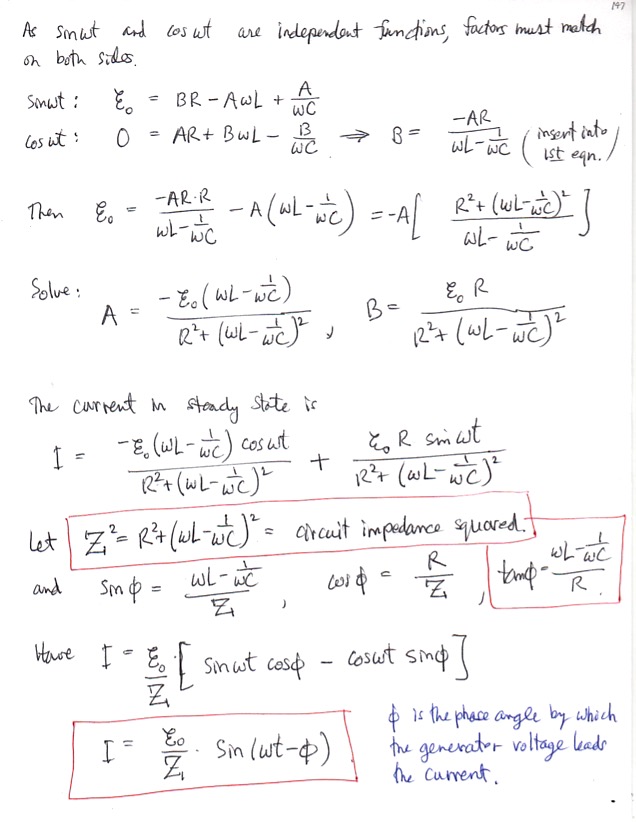 147
As sinωt and cos ωt are independent functions, factors must match
on both sides.
sinωt : ℰ₀ = BR - AωL + A/ωC
cos ωt : 0 = AR + BωL - B/ωC ⟹ B = -AR/(ωL - 1/ωC) (insert into 1st eqn.)
Then ℰ₀ = -AR·R/(ωL - 1/ωC) - A(ωL - 1/ωC) = -A[(R² + (ωL - 1/ωC)²)/(ωL - 1/ωC)]
Solve : A = -ℰ₀(ωL - 1/ωC)/(R² + (ωL - 1/ωC)²), B = ℰ₀ R/(R² + (ωL - 1/ωC)²)
The current in steady state is
I = -ℰ₀(ωL - 1/ωC) cos ωt/(R² + (ωL - 1/ωC)²) + ℰ₀ R sin ωt/(R² + (ωL - 1/ωC)²)
Let Z² = R² + (ωL - 1/ωC)² = circuit impedance squared.
and sin ϕ = (ωL - 1/ωC)/Z, cos ϕ = R/Z, tanϕ = (ωL - 1/ωC)/R.
Have I = ℰ₀/Z [sinωt cosϕ - cosωt sinϕ]
I = ℰ₀/Z · sin(ωt - ϕ)
ϕ is the phase angle by which
the generator voltage leads
the current.